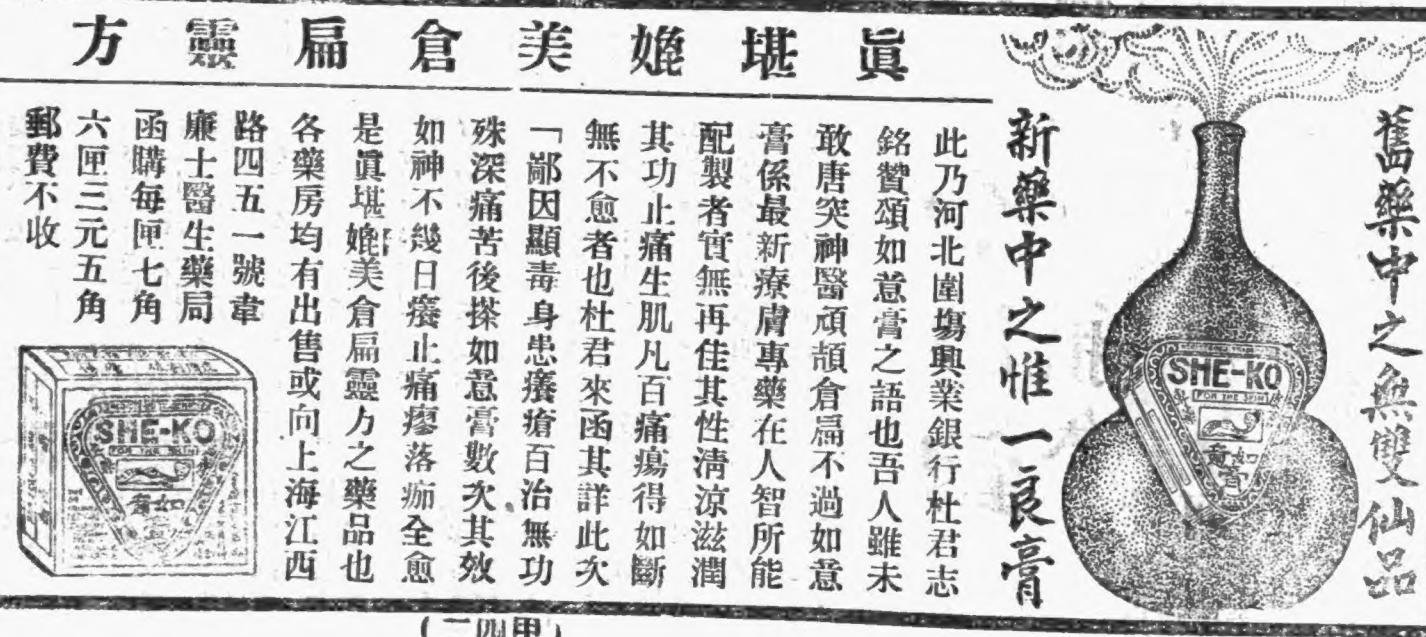 舊藥中之無雙仙品
新藥中之惟一良膏
眞堪媲美倉扁靈方
此乃河北圍塲興業銀行杜君志
銘贊頌如意膏之語也吾人雖未
敢唐突神醫頑頡倉扁不過如意
膏係最新療膚專藥在人智所能
配製者實無再佳其性淸凉滋潤
其功止痛生肌凡百痛瘍得如斷
無不愈者也杜君來函其詳此次
「鄙因顯毒身患癢瘡百治無功
殊深痛苦後搽如意膏數次其效
如神不幾日癢止痛瘳落痂全愈
是眞堪媲美倉扁靈力之藥品也
各藥房均有出售或向上海江西
路四五一號韋
廉士醫生藥局
函購每匣七角
六匣三元五角
郵費不收
SHE-KO
FOR THE SKIN
如意膏
SHE-KO
FOR THE SKIN
如意膏
(二四甲)